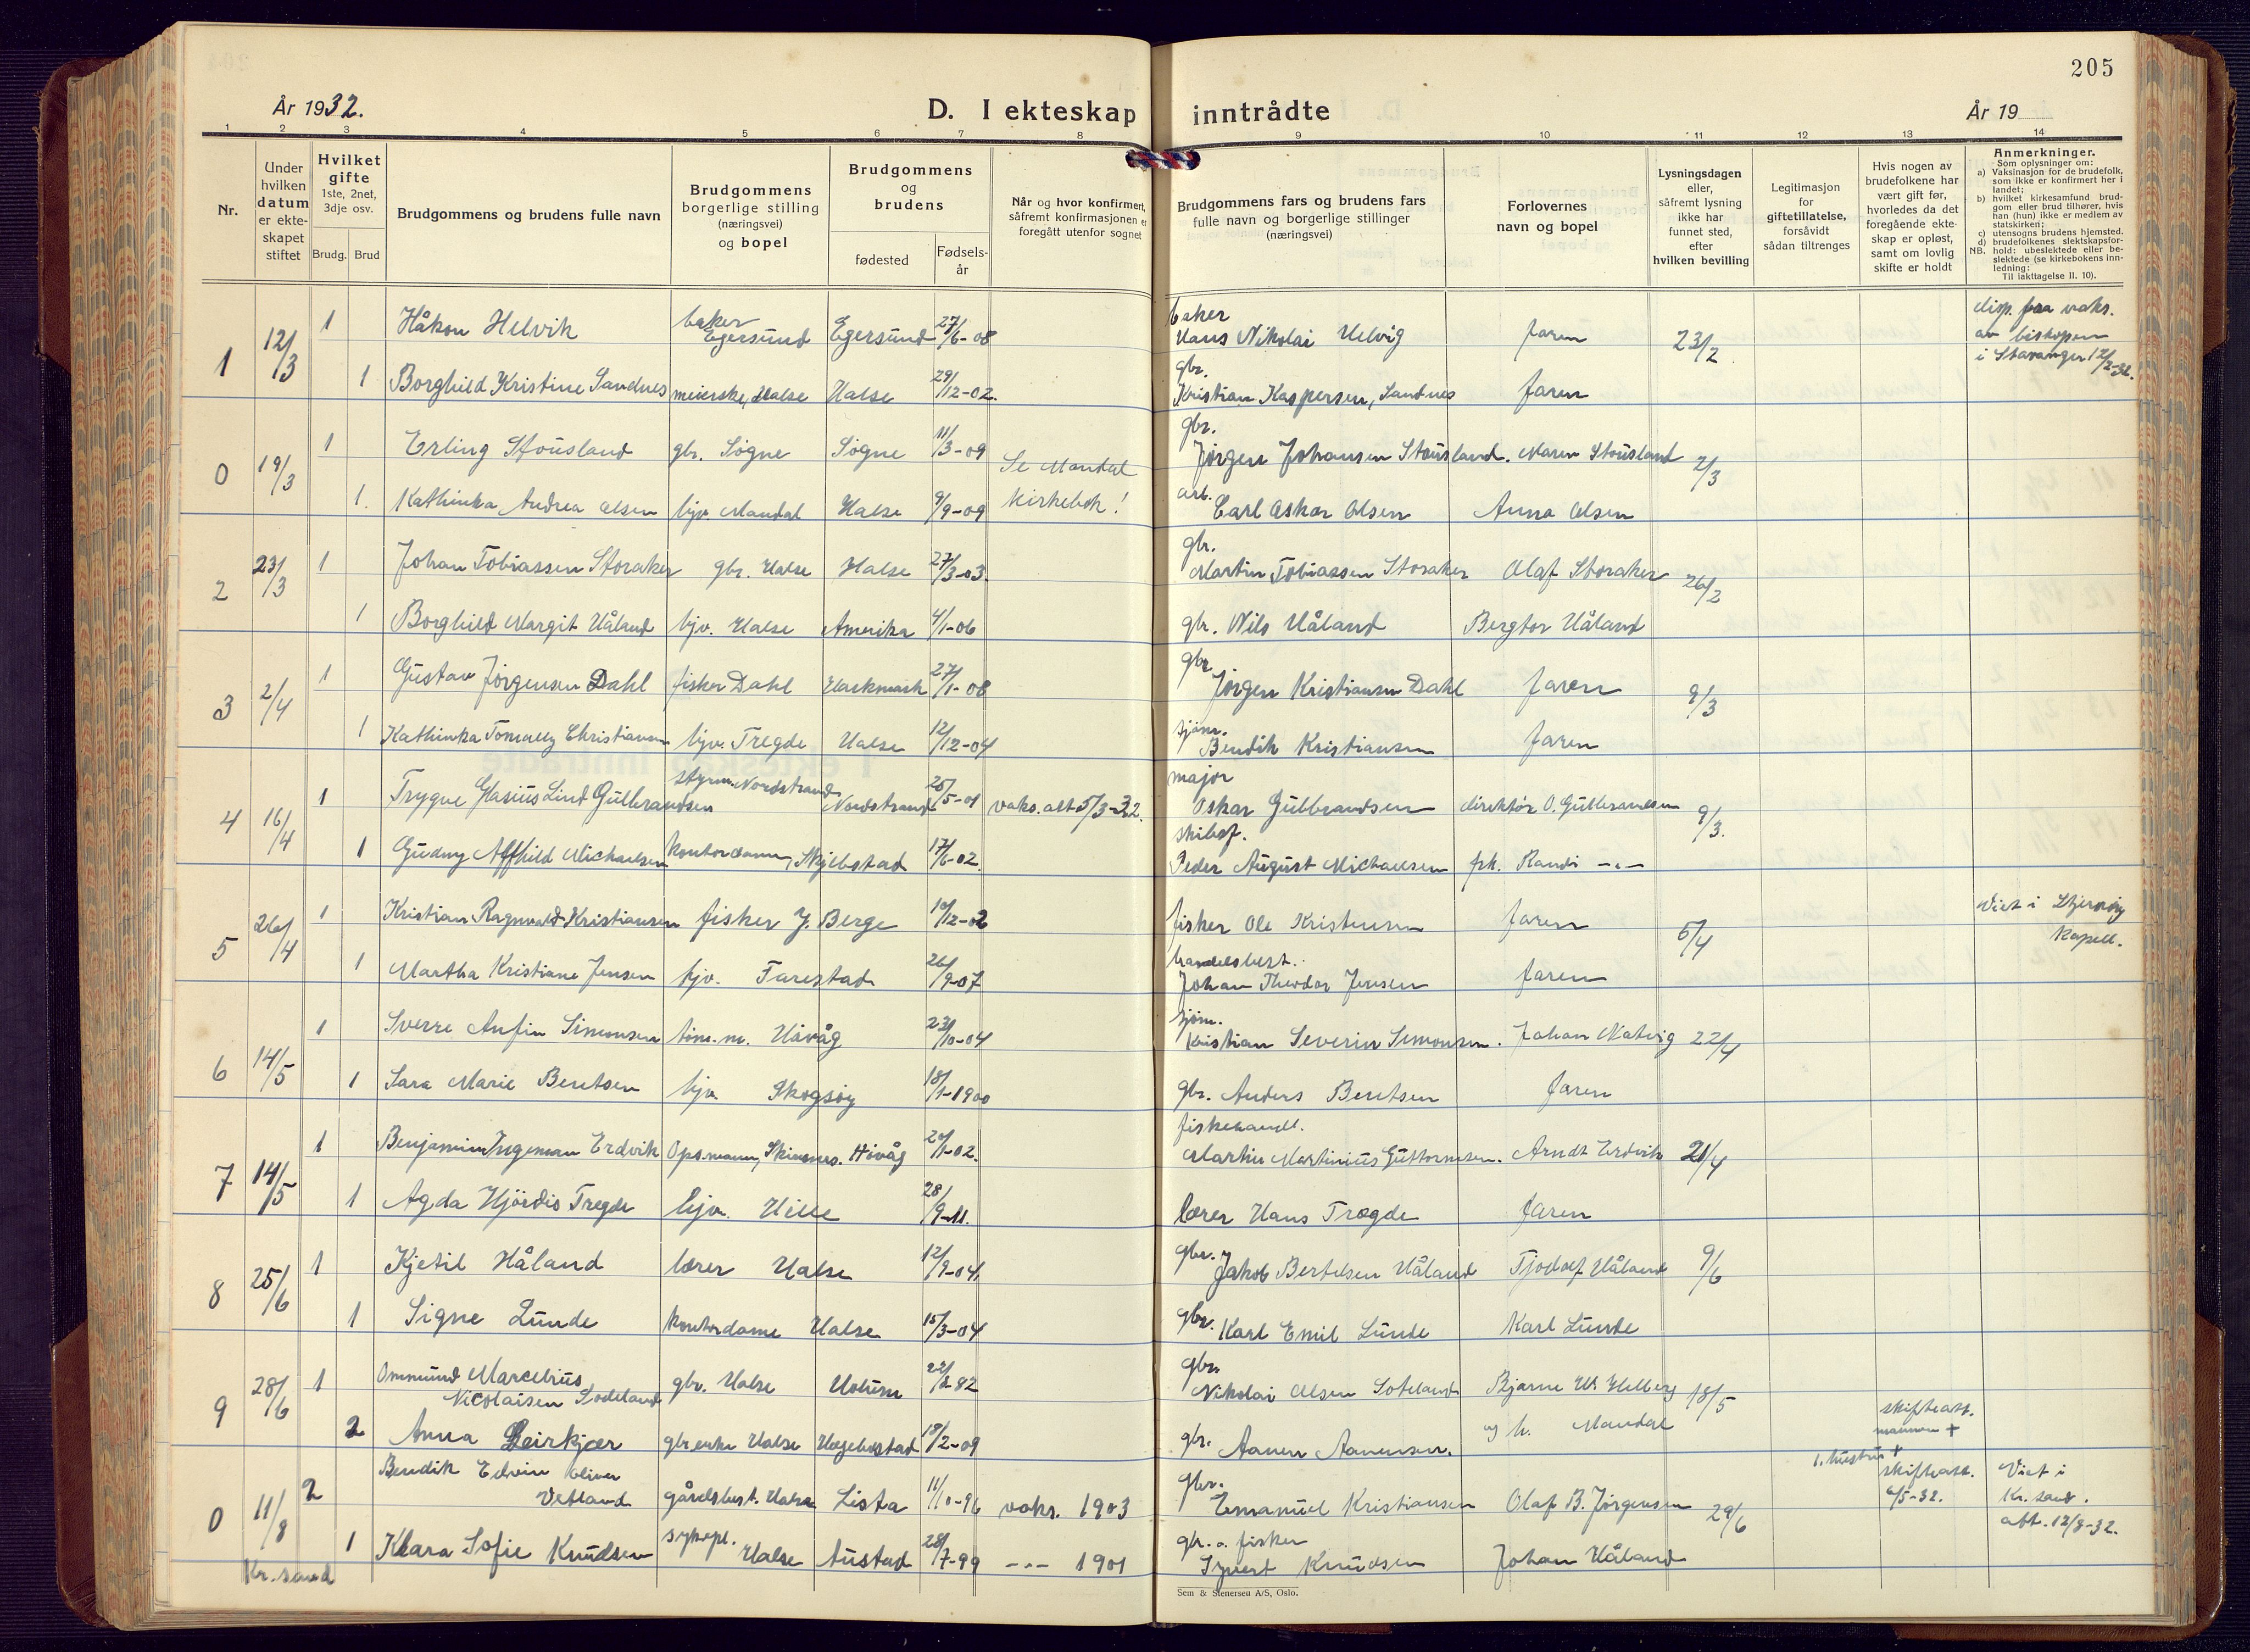 205
År 1932.
D. I ekteskap inntrådte
År 19
1 2 3 4 5 6 7 8 9 10 11 12 13 14
Nr.
Under
hvilken
datum
er ekte-
skapet
stiftet
Hvilket
gifte
1ste, 2net,
3dje osv.
Brudg. Brud
Brudgommens og brudens fulle navn
Brudgommens
borgerlige stilling
(næringsvei)
og bopel
Brudgommens
og
brudens
fødested
Fødsels-
år
Når og hvor konfirmert,
såfremt konfirmasjonen er
foregått utenfor sognet
Brudgommens fars og brudens fars
fulle navn og borgerlige stillinger
(næringsvei)
Forlovernes
navn og bopel
Lysningsdagen
eller,
såfremt lysning
ikke har
funnet sted,
efter
hvilken bevilling
Legitimasjon
for
giftetillatelse,
forsåvidt
sådan tiltrenges
Hvis nogen av
brudefolkene har
vært gift før,
hvorledes da det
foregående ekte-
skap er opløst,
samt om lovlig
skifte er holdt
Anmerkninger.
Som oplysninger om:
a) Vaksinasjon for de brudefolk,
som ikke er konfirmert her i
landet;
b) hvilket kirkesamfund brud-
gom eller brud tilhører, hvis
han (hun) ikke er medlem av
statskirken;
c) utensogns brudens hjemsted.
d) brudefolkenes slektskapsfor-
NB. hold: ubeslektede eller be-
slektede (se kirkebokens inn-
ledning:
Til iakttagelse II. 10).
1 12/3 1 Håkon Helvik baker Egersund Egersund 27/6-08 baker Hans Nikolai Helvig faren 23/2 disp. fra vaks.
av biskopen
i Stavanger 12/2-32.
1 Borghild Kristine Sandnes meierske, Halse Halse 29/12-02. gbr. Kristian Kaspersen, Sandnes faren
0 19/3 1 Erling Stousland gbr. Søgne Søgne 11/3-09 Se Mandal gbr. Jørgen Johansen Stousland. Maren Stousland 2/3
1. Kathinka Andrea Olsen hjv. Mandal Halse 9/9-09 kirkebok! arb. Carl Oskar Olsen Anna Olsen
2 23/3 1 Johan Tobiassen Storaker gbr. Halse Halse 27/3-03. gbr. Martin Tobiassen Storaker Olaf Storaker 26/2
1 Borghild Margit Håland hjv. Halse Amerika 4/1-06 gbr. Nils Håland Bergtor Håland
3 2/4 1 Gustav Jørgensen Dahl fisker Dahl Harkmark 27/1-08 gbr Jørgen Kristiansen Dahl faren 9/3
1 Kathinka Tomally Christiansen hjv. Tregde Halse 12/12-04 sjøm. Bendik Kristiansen faren
4 16/4 1 Trygve Glasius Lind Gulbrandsen styrm. Nordstrand Nordstrand 25/5-01 vaks. att 5/3-32. major Oskar Gulbrandsen direktør O. Gulbrandsen 9/3.
1 Gudny Alfhild Michaelsen kontordame, Skjebstad 17/6-02. skibsf. Peder August Michaelsen frk. Randi -„-
5 26/4 1 Kristian Ragnvald Kristiansen fisker Y. Berge 10/12-02 fisker Ole Kristensen faren 5/4 Viet i Skjernøy
Kapell.
1 Martha Kristiane Jensen hjv. Farestad 26/9-07 handelsbest. Johan Theodor Jensen faren
6 14/5 1 Sverre Anfin Simonsen tøm.m. Høvåg 23/10-04 sjøm. Kristian Severin Simonsen. Johan Natvig 22/4
1 Sara Marie Bentsen hjv Skogsøy 18/1-1900 gbr. Anders Bentsen faren
7 14/5 1 Benjamin Ingeman Erdvik Ops.mann, Høvåg 20/11-02. fiskehandl. Martin Martinius Guttormsen. Arndt Erdvik 21/4
1 Agda Hjördis Tregde hjv. Hille 28/9-11. lærer Hans Trægde faren
8 25/6 1 Kjetil Håland lærer Halse 12/9-04 gbr. Jakob Bertelsen Håland Tjodolf Håland 9/6
1 Signe Lunde kontordame Halse 15/3-04 gbr. Karl Emil Lunde Karl Lunde
9 28/6 1 Ommund Marcelius
Nicolaisen Sodeland gbr. Halse Holum 22/8-82 gbr. Nikolai Olsen Sodeland Bjarne W. Helberg 18/5
og h. Mandal
2 Anna Leirkjær gbr.enke Halse Hægebostad 18/2-09 gbr. Aanen Aanensen. skifteatt.
mannen +
0 11/8 2 Bendik Edvin Oliver
Vetland gårdsbest. Halse Lista 11/10-96 vaks. 1903 gbr. Emanuel Kristiansen Olaf B. Jørgensen 29/6 1. hustru +
skifteatt.
2/5-32. Viet i
Kr.sand.
att. 12/8-32.
1 Klara Sofie Knudsen sykepl. Halse Austad 28/7-99 -„- 1901 gbr. o. fisker Syvert Knudsen Johan Håland
Kr.sand
Sem & Stenersen A/S, Oslo.